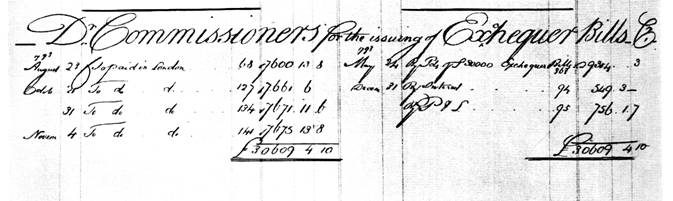 Dr. Commissioners for the issuing of Exchequer Bills Cr.
1793 1793
August 28 To paid in London 68 £7600 13 8 May 24 By 30000 Exchequer Bills 368 £29304 " 3
Octob. 21 To do do 127 7661 6 Decem 31 By Interest 94 549 3 -
31 To do do 134 7671 11 6 By P & L 95 756 1 7
Novem 4 To do do 141 7675 13 8
£30609 4 10 £30609 4 10